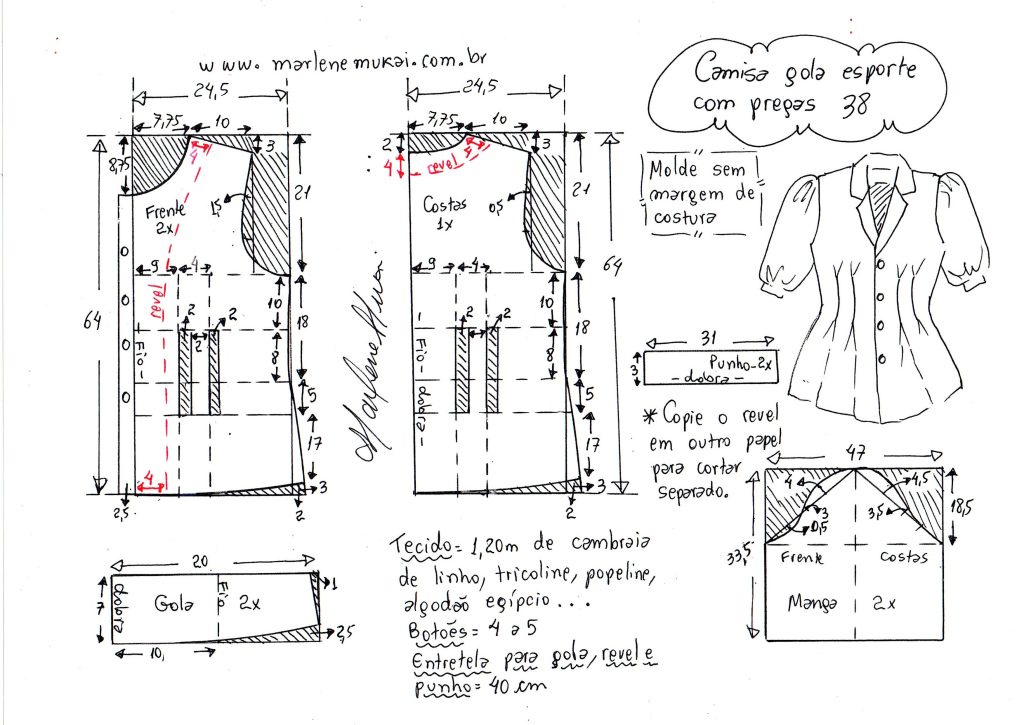 www.marlenemukai.com.br
Camisa gola esporte
com pregas 38
Molde sem
margem de
costura
24,5
7,75
10
8,75
4
3
21
Frente
2x
1,5
9
4
revel
64
10
18
2
2
2
8
Fio
5
17
4
2,5
3
2
24,5
7,75
10
2
4
revel
5
3
21
Costas
1x
0,5
9
4
64
10
18
2
2
2
8
Fio
dobra
5
17
3
2
Marlene Mukai
31
3
Punho-2x
dobra
* Copie o revel
em outro papel
para cortar
separado.
47
4
4,5
3
3,5
0,5
18,5
33,5
Frente
Costas
Manga 2x
20
1
7
dobra
Gola
Fio
2x
2,5
10,
Tecido = 1,20m de cambraia
de linho, tricoline, popeline,
algodão egípcio...
Botões = 4 a 5
Entretela para gola, revel e
punho = 40 cm